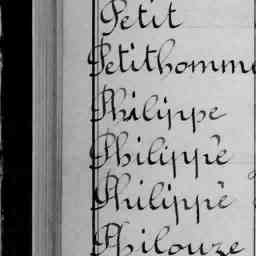 Petit
Petithomme
Philippe
Philippe
Philippe
Philouze